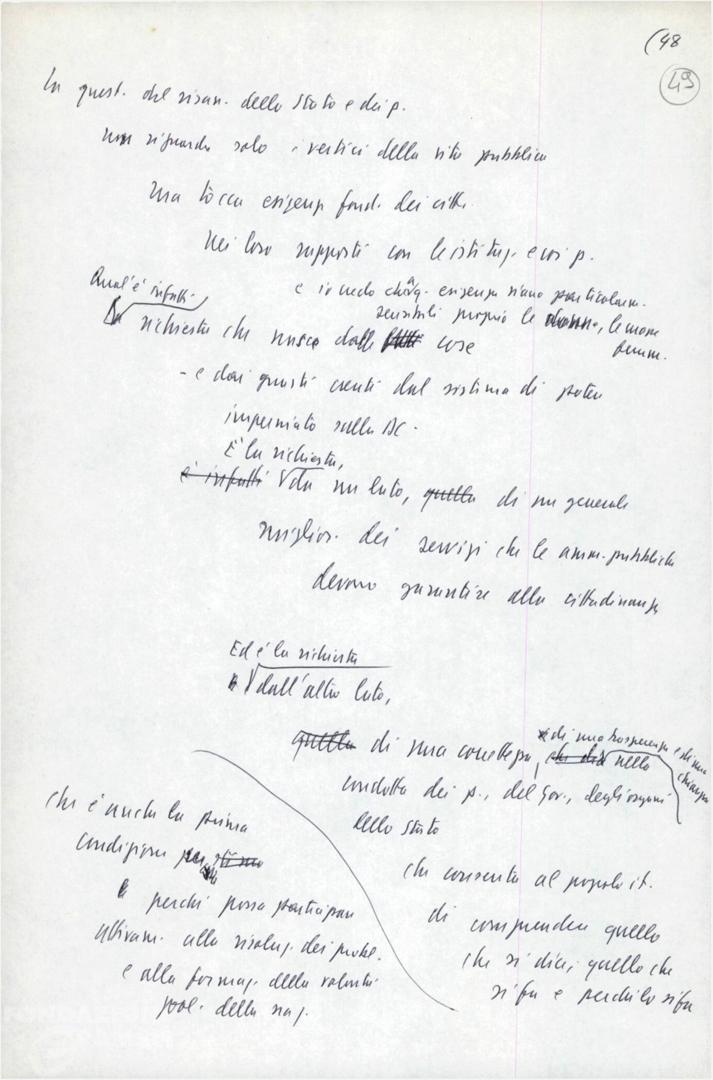 (48
49
la quest. del risan. dello Stato e dei p.
non riguarda solo i vertici della vita pubblica
ma tocca esigenze fond. dei citt.
nei loro rapporti con le istituz. e coi p.
e io vedo che a q. esigenza siano particolarm.
sensibili proprio le donne, le masse
femm.
Qual'è infatti
la richiesta che nasce dalle cose
- e dai guasti creati dal sistema di potere
imperniato sulla DC -
È la richiesta,
è infatti da un lato, quella di un generale
miglior. dei servizi che le amm. pubbliche
devono garantire alla cittadinanza
Ed è la richiesta
dall'altro lato,
quella di una correttezza, di una trasparenza e di una
chiarezza
che dia nella
condotta dei p., del gov., degli organi
dello Stato
che consenta al popolo it.
di comprendere quello
che si dice, quello che
si fa e perché lo si fa
che è anche la prima
condizione
perché possa partecipare
attivam. alla risoluz. dei probl.
e alla formaz. della volontà
pol. della naz.